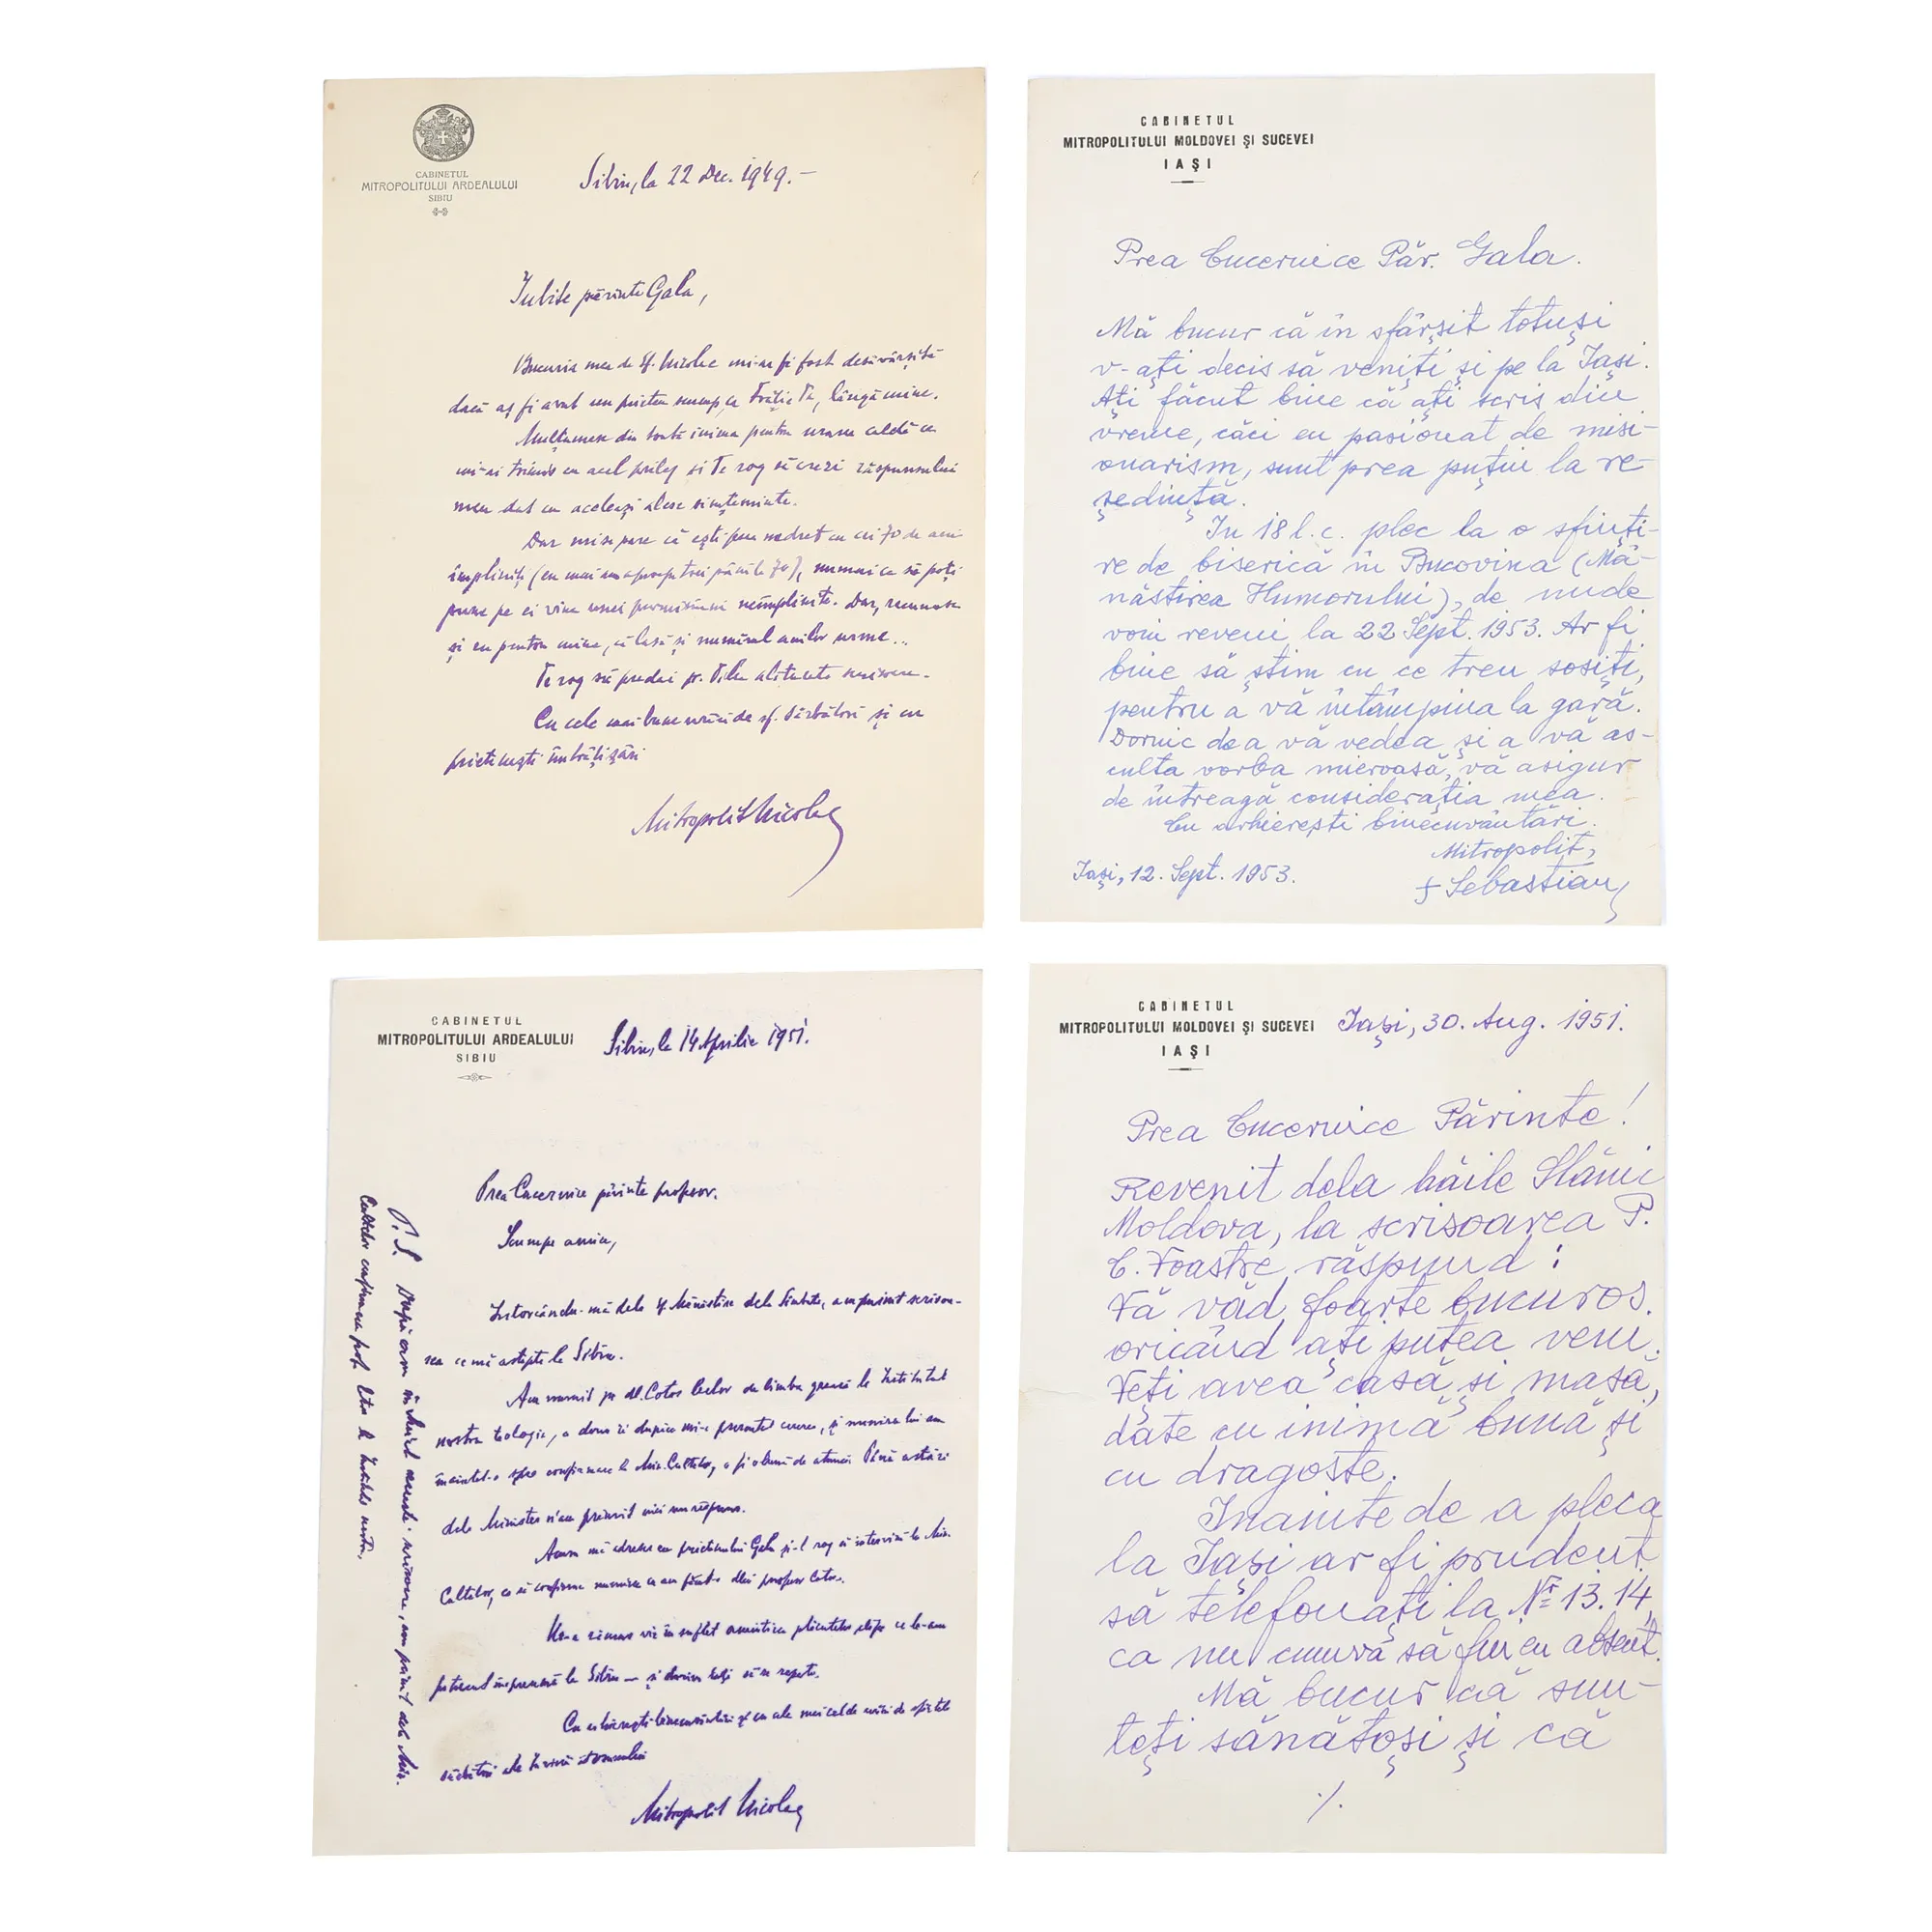 CABINETUL
MITROPOLITULUI ARDEALULUI
SIBIU
Sibiu, la 22 Dec. 1949.-
Iubite părinte Gala,
Bucuria mea de Sf. Nicolae mi-ar fi fost desăvârșită
dacă aș fi avut un prieten scump ca Frăția Ta, lângă mine.
Mulțumesc din toată inima pentru urarea caldă ce
mi-ai trimis cu acel prilej și Te rog să crezi răspunsului
meu dat cu aceleași alese simțeminte.
Dar mi se pare că ești prea nedrept cu cei 70 de ani
împliniți (eu mai am a trei până la 70), numai ca să poți
pune pe ei vina unei promisiuni neîmplinite. Dar, recunosc
și eu pentru mine, că lasă și numărul anilor urme...
Te rog să predai pr. alăturata scrisoare.
Cu cele mai bune urări de sf. Sărbători și cu
prietenești îmbrățișări
Mitropolit Nicolae
CABINETUL
MITROPOLITULUI MOLDOVEI ȘI SUCEVEI
IAȘI
Prea Cucernice Păr. Gala.
Mă bucur că în sfârșit totuși
v-ați decis să veniți și pe la Iași.
Ați făcut bine că ați scris din
vreme, căci eu pasionat de misi-
onarism, sunt prea puțin la re-
ședință.
In 18 l. c. plec la o sfinți-
re de biserică în Bucovina (Mâ-
năstirea Humorului), de unde
voiu reveni la 22 Sept. 1953. Ar fi
bine să știm cu ce tren sosiți,
pentru a vă întâmpina la gară.
Dornic de a vă vedea și a vă as-
culta vorba mieroasă, vă asigur
de întreagă considerația mea.
Cu arhierești binecuvântări.
Mitropolit,
Iași, 12. Sept. 1953.
† Sebastian
CABINETUL
MITROPOLITULUI ARDEALULUI
SIBIU
Sibiu, la 14 Aprilie 1951.
Prea Cucernice părinte profesor.
Scumpe amice,
Intorcându-mă dela sf. Mănăstire dela Sâmbăta, am primit scrisoa-
rea ce mă aștepta la Sibiu.
Am numit pe dl. Cotos lector de limba greacă la Institutul
nostru teologic, a doua zi după ce mi-a prezentat cererea, și numirea lui am
înaintat-o spre confirmare la Min. Cultelor, o fi o lună de atunci. Până astăzi
dela Minister n'am primit nici un răspuns.
Acum mă adresez cu prietenului Gala și-l rog să intervină la Min.
Cultelor, ca să confirme numirea ce am făcut-o dlui profesor Cotos.
Mi-a rămas viu în suflet amintirea plăcutelor clipe ce le-am
petrecut împreună la Sibiu — și doresc să se repete.
Cu arhierești binecuvântări și cu ale mele calde urări de sfintele
sărbători ale Învierii Domnului
Mitropolit Nicolae
P. S. După ce am încheiat această scrisoare, am primit dela Min.
Cultelor confirmarea prof. la Institutul nostru.
CABINETUL
MITROPOLITULUI MOLDOVEI ȘI SUCEVEI
IAȘI
Iași, 30. Aug. 1951.
Prea Cucernice Părinte!
Revenit dela băile Slănic
Moldova, la scrisoarea P.
C. Voastre răspund:
Vă văd foarte bucuros.
oricând ați putea veni.
Veți avea casă și masă,
date cu inimă bună și
cu dragoste.
Inainte de a pleca
la Iași ar fi prudent
să telefonați la Nr 13.14,
ca nu cumva să fiu eu absent.
Mă bucur că sun-
teți sănătoși și că
./.